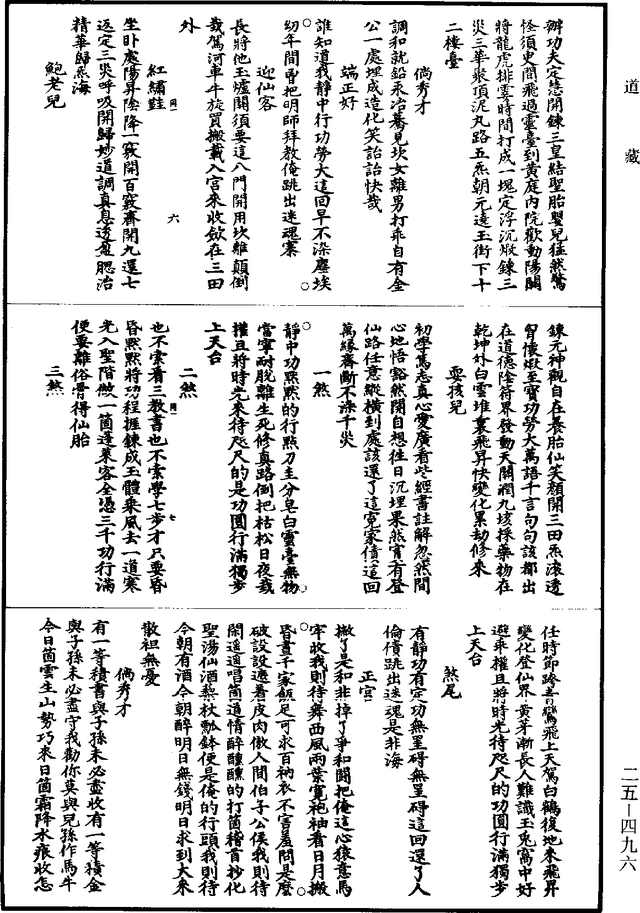 道藏
辦功夫定慧開鍊三皇結聖胎嬰兒猛然驚
怪須史間飛過靈臺到黃庭內院歡動陽關
將龍虎排霎時間打成一塊定浮沉煅鍊三
炁三華聚頂泥丸路五炁朝元遶玉街下十
二樓臺
倘秀才
調和就鉛汞冶驀見坎女離男打乖自有金
公一處埋成造化笑詒詒快哉
端正好
誰知道我靜中行功勞大這回早不染塵埃
幼年間曾把明師拜教俺跳出迷魂寨
迎仙客
長將他玉爐關須要這八門開用坎離顛倒
栽駕河車牛旋買搬載入宮來收斂在三田
外
紅繡鞋
六
坐卧處陽昇陰降一竅開百竅齊開九還七
返定三炎呼吸開歸妙道調真息透盈腮治
精華歸炁海
鮑老兒
鍊元神觀自在養胎仙笑顏開三田炁滚透
胷懷煅至寶功勞大萬語千言句句該都出
在道德陰符界發動天關濶九垓採藥物在
乾坤外白雲堆裏飛昇快變化累劫修來
耍孩兒
初學篤志真心愛廣看些經書註解忽然間
心地悟豁然開自想往日沉埋果然實有登
仙路任意縱橫到處該還了這寃家債這回
萬緣齊斷不染千災
一煞
靜中功黙黙的行點刀圭分皂白靈臺無物
當寧耐脫離生死修真路倒把枯松日夜栽
權且將時光來待咫尺的是功圓行滿獨步
上天台
二煞
也不索看三教書也不索學七步才只要昏
七
昏黙黙將功程捱鍊成玉體乘風去一道寒
光入聖階做一箇蓬萊客全憑三千功行滿
便要離俗骨得仙胎
三煞
任時節跨青鸞飛上天駕白鶴復地來飛昇
變化登仙界黃芽漸長人難識玉兔窩中好
避乘權且將時光待咫尺的功圓行滿獨步
上天台
煞尾
有靜功有定功無罣碍無罣碍這回還了人
倫債跳出迷魂是非海
正宮
撇了是和非掉了爭和鬭把俺這心猿意馬
牢收我則待舞西風兩葉寬袍袖看日月搬
昏晝千家飯足可求百衲衣不害羞問是麼
破設設遮著皮肉傲人間伯子公侯我則待
閑遥遥唱箇道情醉醺醺的打箇稽首抄化
聖湯仙酒藜杖瓢鉢便是俺的行頭我則待
今朝有酒今朝醉明日無錢明日求到大來
散袒無憂
倘秀才
有一等積書與子孫未必盡收有一等積金
與子孫未必盡守我勸你莫與兒孫作馬牛
今日箇雲生山勢巧來日箇霜降水痕收怎
二五—四九六